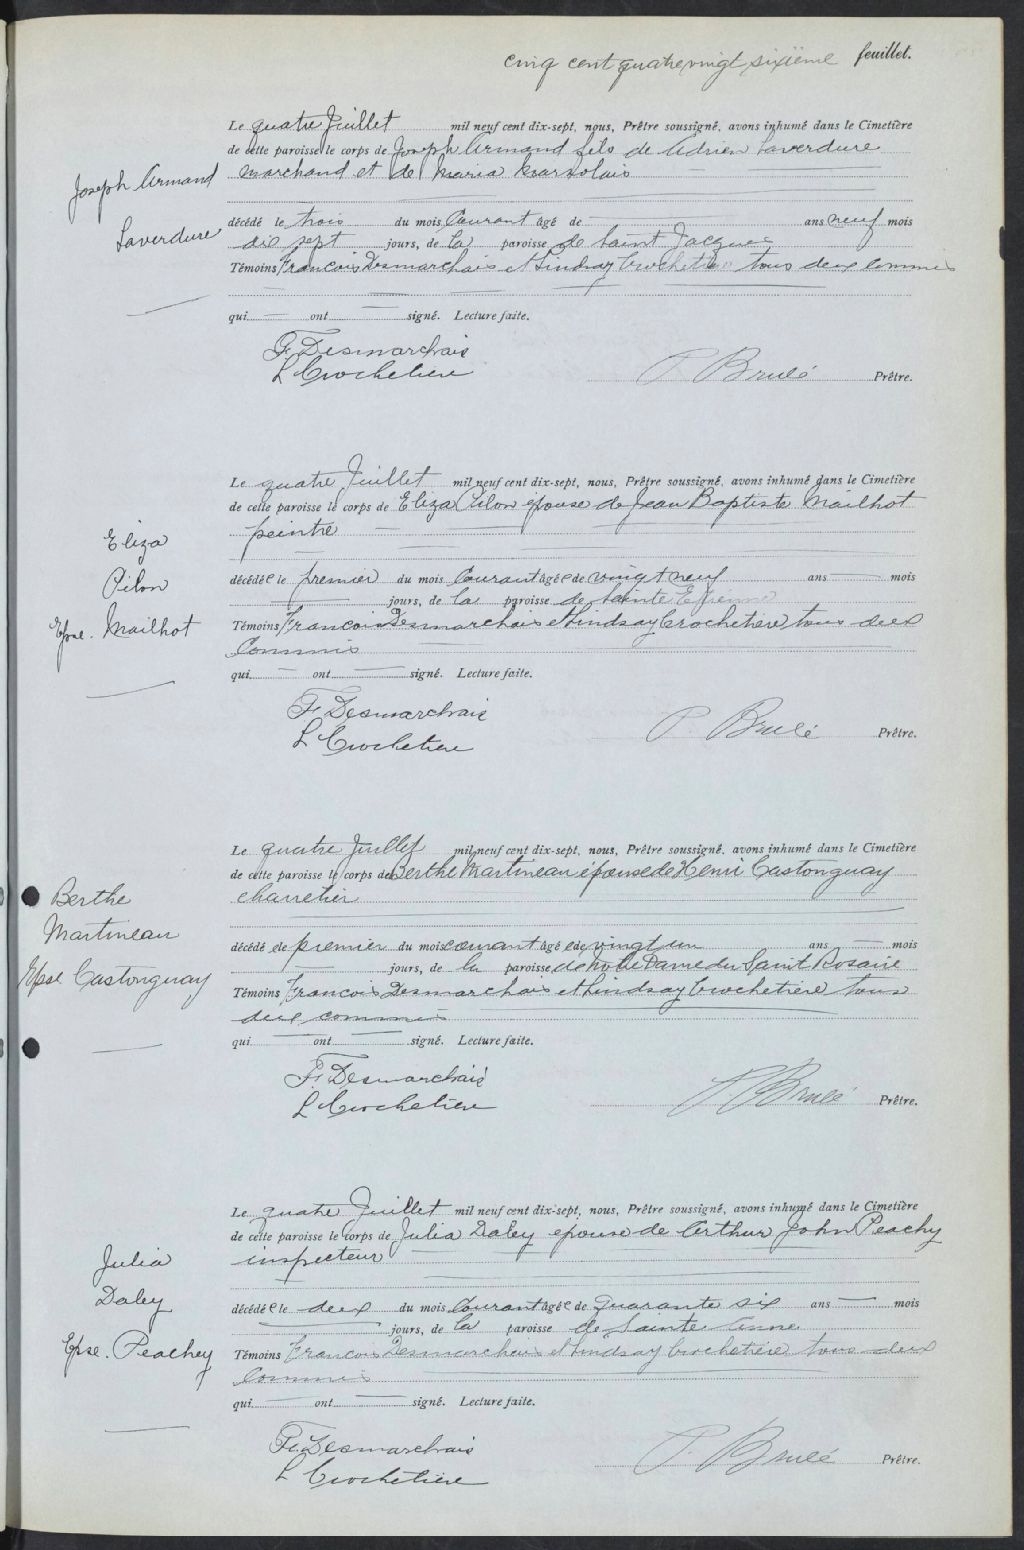 cinq cent quatrevingt sixième feuillet.
Le quatre Juillet mil neuf cent dix-sept, nous, Prêtre soussigné, avons inhumé dans le Cimetière
de cette paroisse le corps de Joseph Armand fils de Adrien Laverdure
marchand et de Maria Marsolais
Joseph Armand
Laverdure
décédé le trois du mois Courant âgé de ans neuf mois
dix sept jours, de la paroisse de Saint Jacques
Témoins Francois Desmarchais et Lindsay Crochetière tous deux commis
qui ont signé. Lecture faite.
F. Desmarchais
L Crochetière
P. Brulé Prêtre.
Le quatre Juillet mil neuf cent dix-sept, nous, Prêtre soussigné, avons inhumé dans le Cimetière
de cette paroisse le corps de Eliza Pilon épouse de Jean Baptiste Mailhot
peintre
Eliza
Pilon
Epse. Mailhot
décédée le premier du mois Courant âgée de vingt neuf ans mois
jours, de la paroisse de Sainte
Témoins Francois Desmarchais et Lindsay Crochetière tous deux
Commis
qui ont signé. Lecture faite.
F. Desmarchais
L Crochetière
P. Brulé Prêtre.
Le quatre Juillet mil neuf cent dix-sept, nous, Prêtre soussigné, avons inhumé dans le Cimetière
de cette paroisse le corps de Berthe Martineau épouse de Henri Castonguay
charretier
Berthe
Martineau
Epse Castonguay
décédée premier du mois courant âgée de vingt un ans mois
jours, de la paroisse de Notre Dame du Saint Rosaire
Témoins Francois Desmarchais et Lindsay Crochetière tous
deux commis
qui ont signé. Lecture faite.
F. Desmarchais
L Crochetière
P. Brulé Prêtre.
Le quatre Juillet mil neuf cent dix-sept, nous, Prêtre soussigné, avons inhumé dans le Cimetière
de cette paroisse le corps de Julia Daley épouse de Arthur John Peachy
inspecteur
Julia
Daley
Epse. Peachey
décédée le deux du mois Courant âgée de quarante six ans mois
jours, de la paroisse de Sainte Anne
Témoins Francois Desmarchais et Lindsay Crochetière tous deux
Commis
qui ont signé. Lecture faite.
F. Desmarchais
L Crochetière
P. Brulé Prêtre.